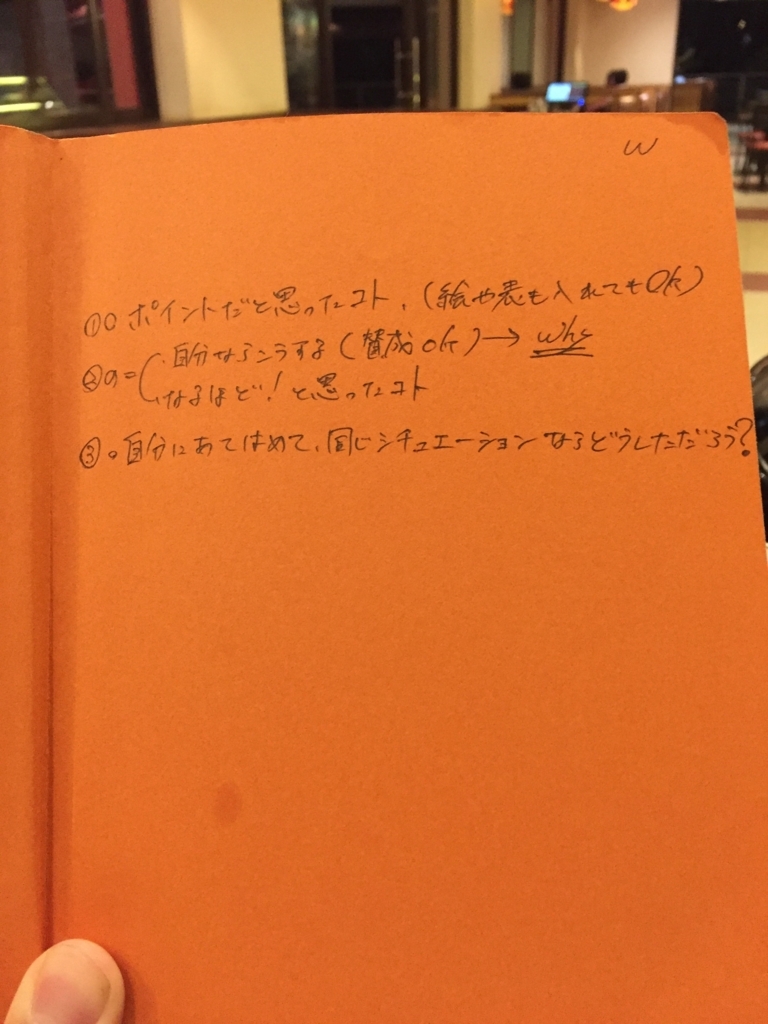 w
①○ ポイントだと思ったコト、(絵や表も入れてもOK)
・自分ならこうする(賛成OK)→ why
②○=( ・なるほど!と思ったコト
③○自分にあてはめて、同じシチュエーションならどうしただろう?